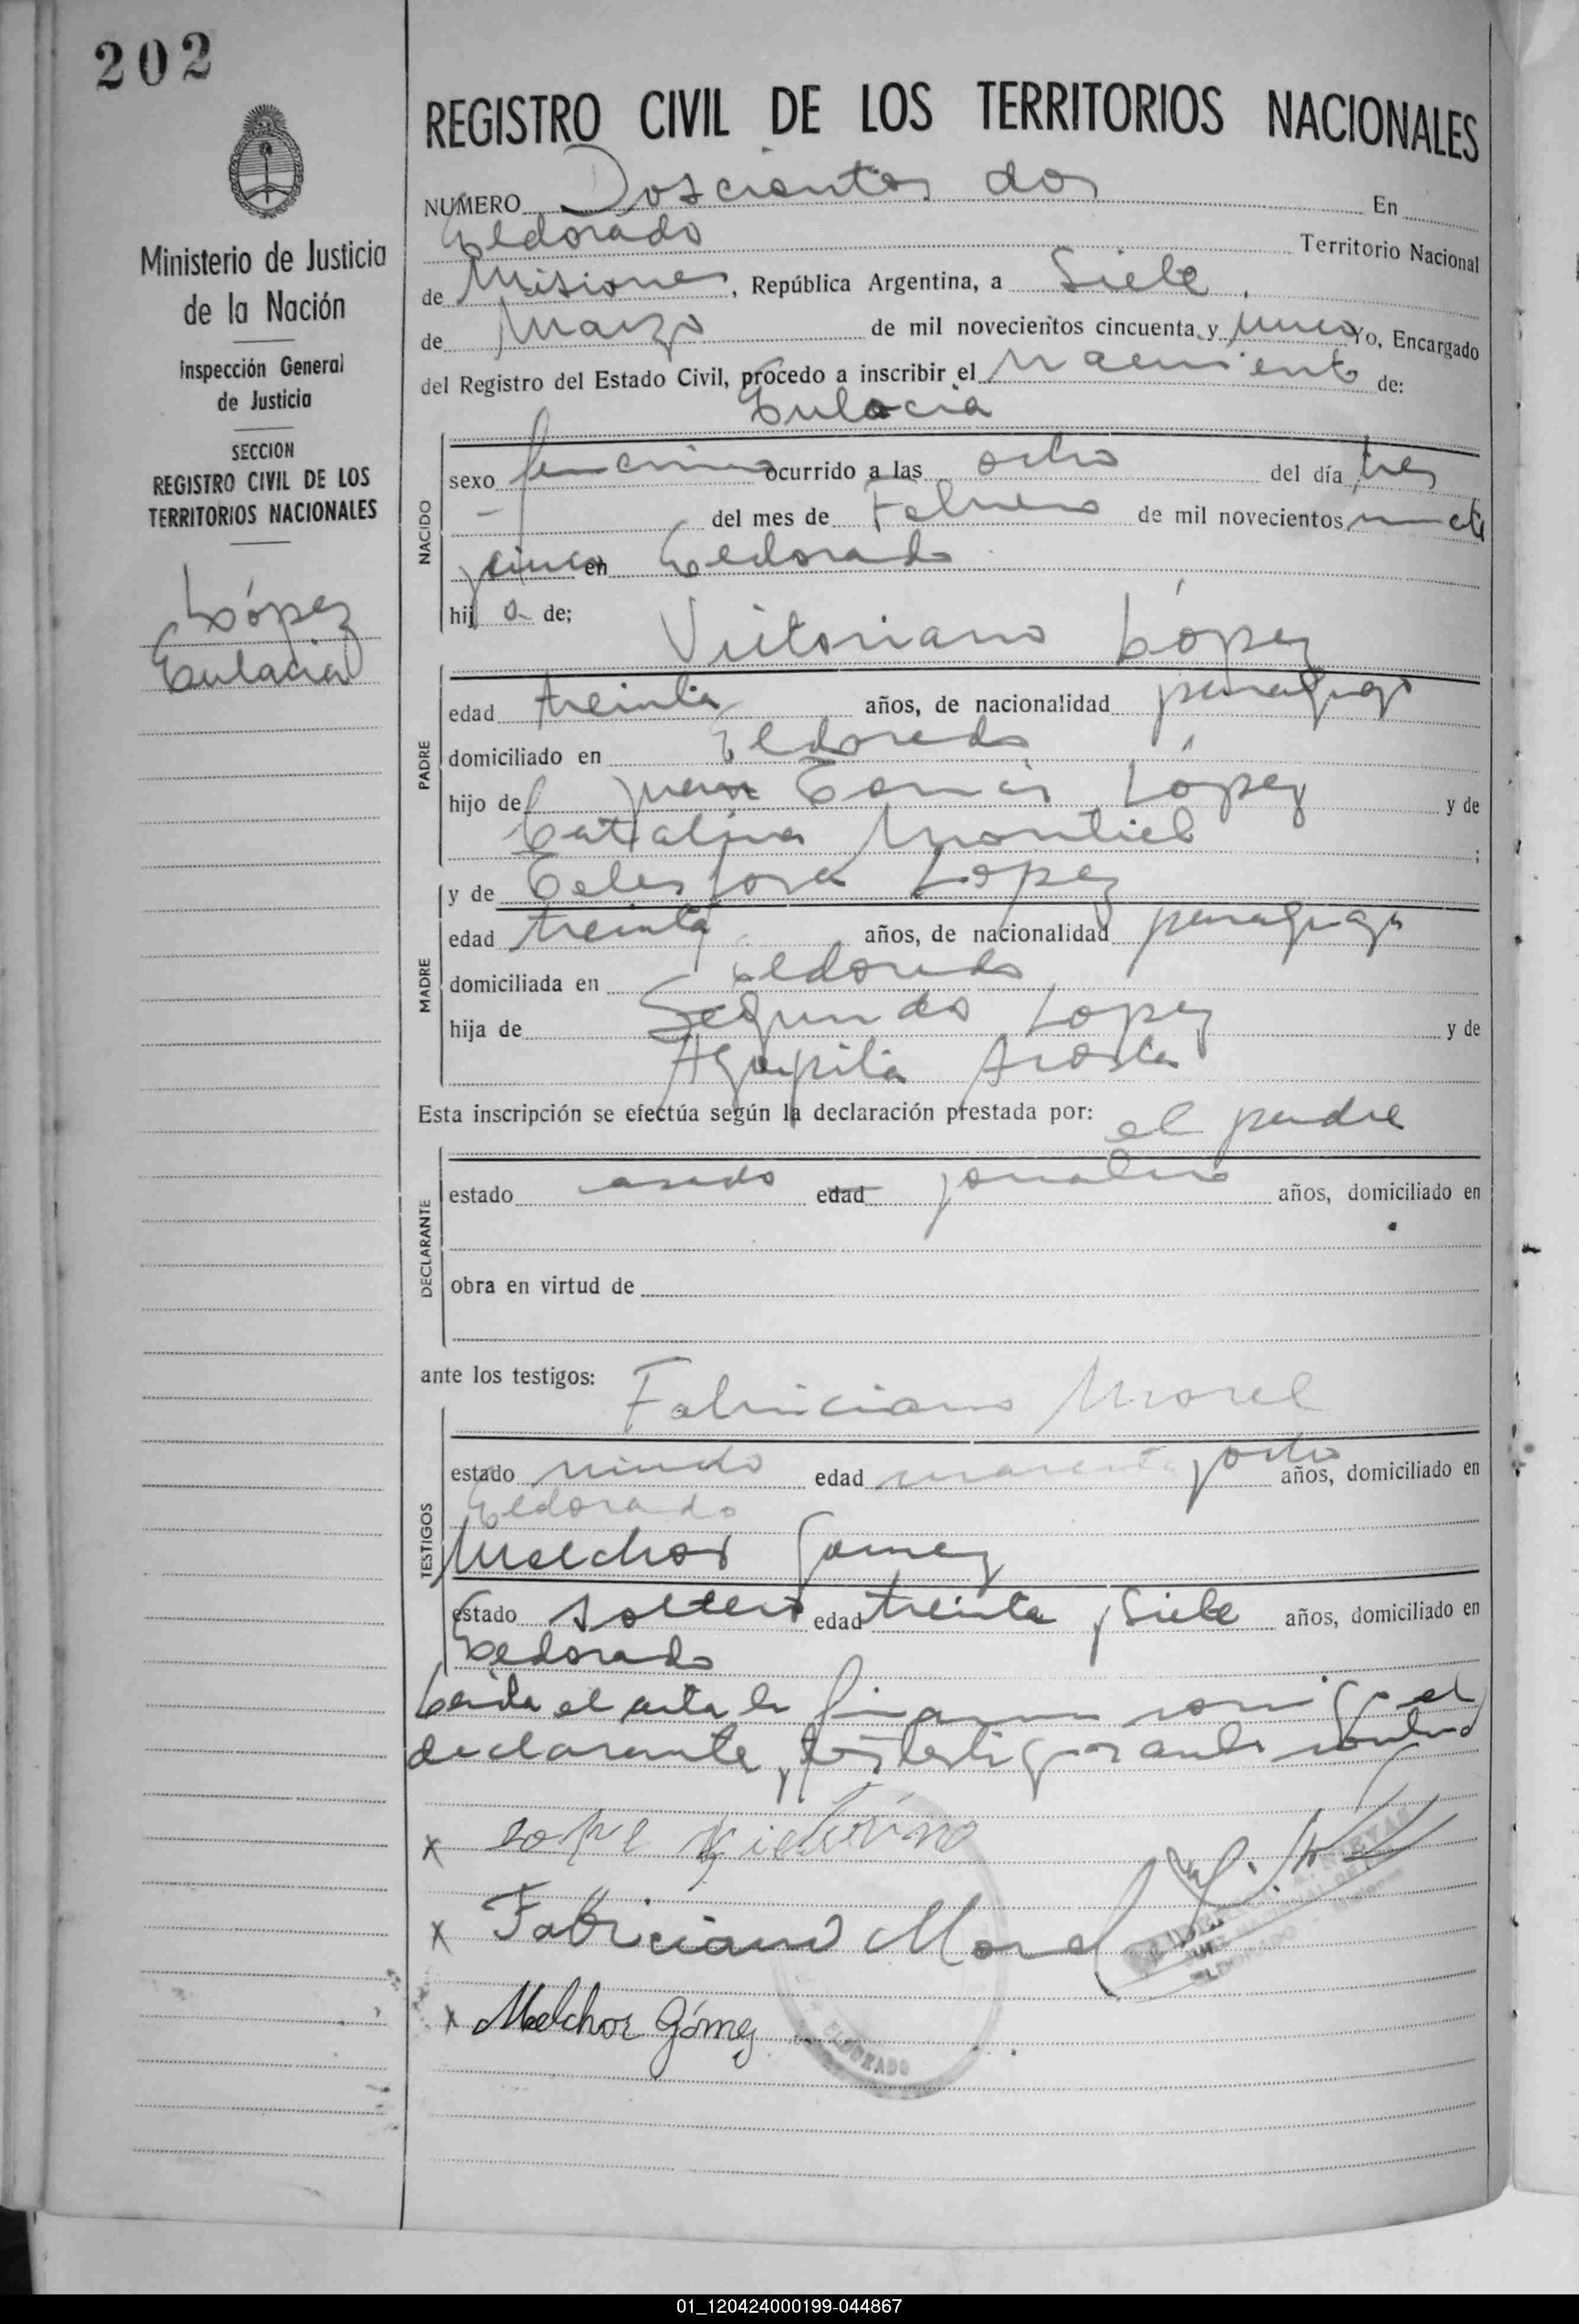 202
Ministerio de Justicia
de la Nación
Inspección General
de Justicia
SECCION
REGISTRO CIVIL DE LOS
TERRITORIOS NACIONALES
López
Eulacia
REGISTRO CIVIL DE LOS TERRITORIOS NACIONALES
NUMERO Doscientos dos En
Eldorado Territorio Nacional
de Misiones, República Argentina, a Siete
de Marzo de mil novecientos cincuenta y uno Yo, Encargado
del Registro del Estado Civil, procedo a inscribir el nacimiento de:
Eulacia
NACIDO
sexo femenino ocurrido a las ocho del día tres
- del mes de Febrero de mil novecientos
y cinco en Eldorado
hij a de; Victoriano López
PADRE
edad treinta años, de nacionalidad paraguayo
domiciliado en Eldorado
hijo de Juan López y de
Catalina Montiel ;
MADRE
y de Celestora Lopez
edad treinta años, de nacionalidad paraguaya
domiciliada en Eldorado
hija de Segundo Lopez y de
Agapita Acosta
Esta inscripción se efectúa según la declaración prestada por: el padre
DECLARANTE
estado casado edad jornalero años, domiciliado en
obra en virtud de
ante los testigos: Fabriciano Morel
TESTIGOS
estado viudo edad cuarenta y ocho años, domiciliado en
Eldorado
Melchor Gomez
estado soltero edad treinta y siete años, domiciliado en
Eldorado
Leida el acta la firman conmigo el
declarante y los testigos
x
x Fabriciano Morel
x Melchor Gómez
ELDORADO
01_120424000199-044867